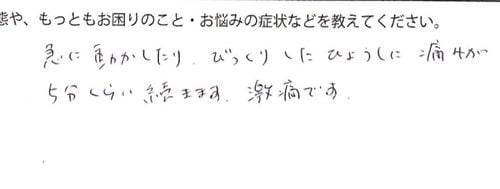 態や、もっともお困りのこと・お悩みの症状などを教えてください。
急に動かしたり、びっくりしたひょうしに痛みが
5分くらい続きます。激痛です。